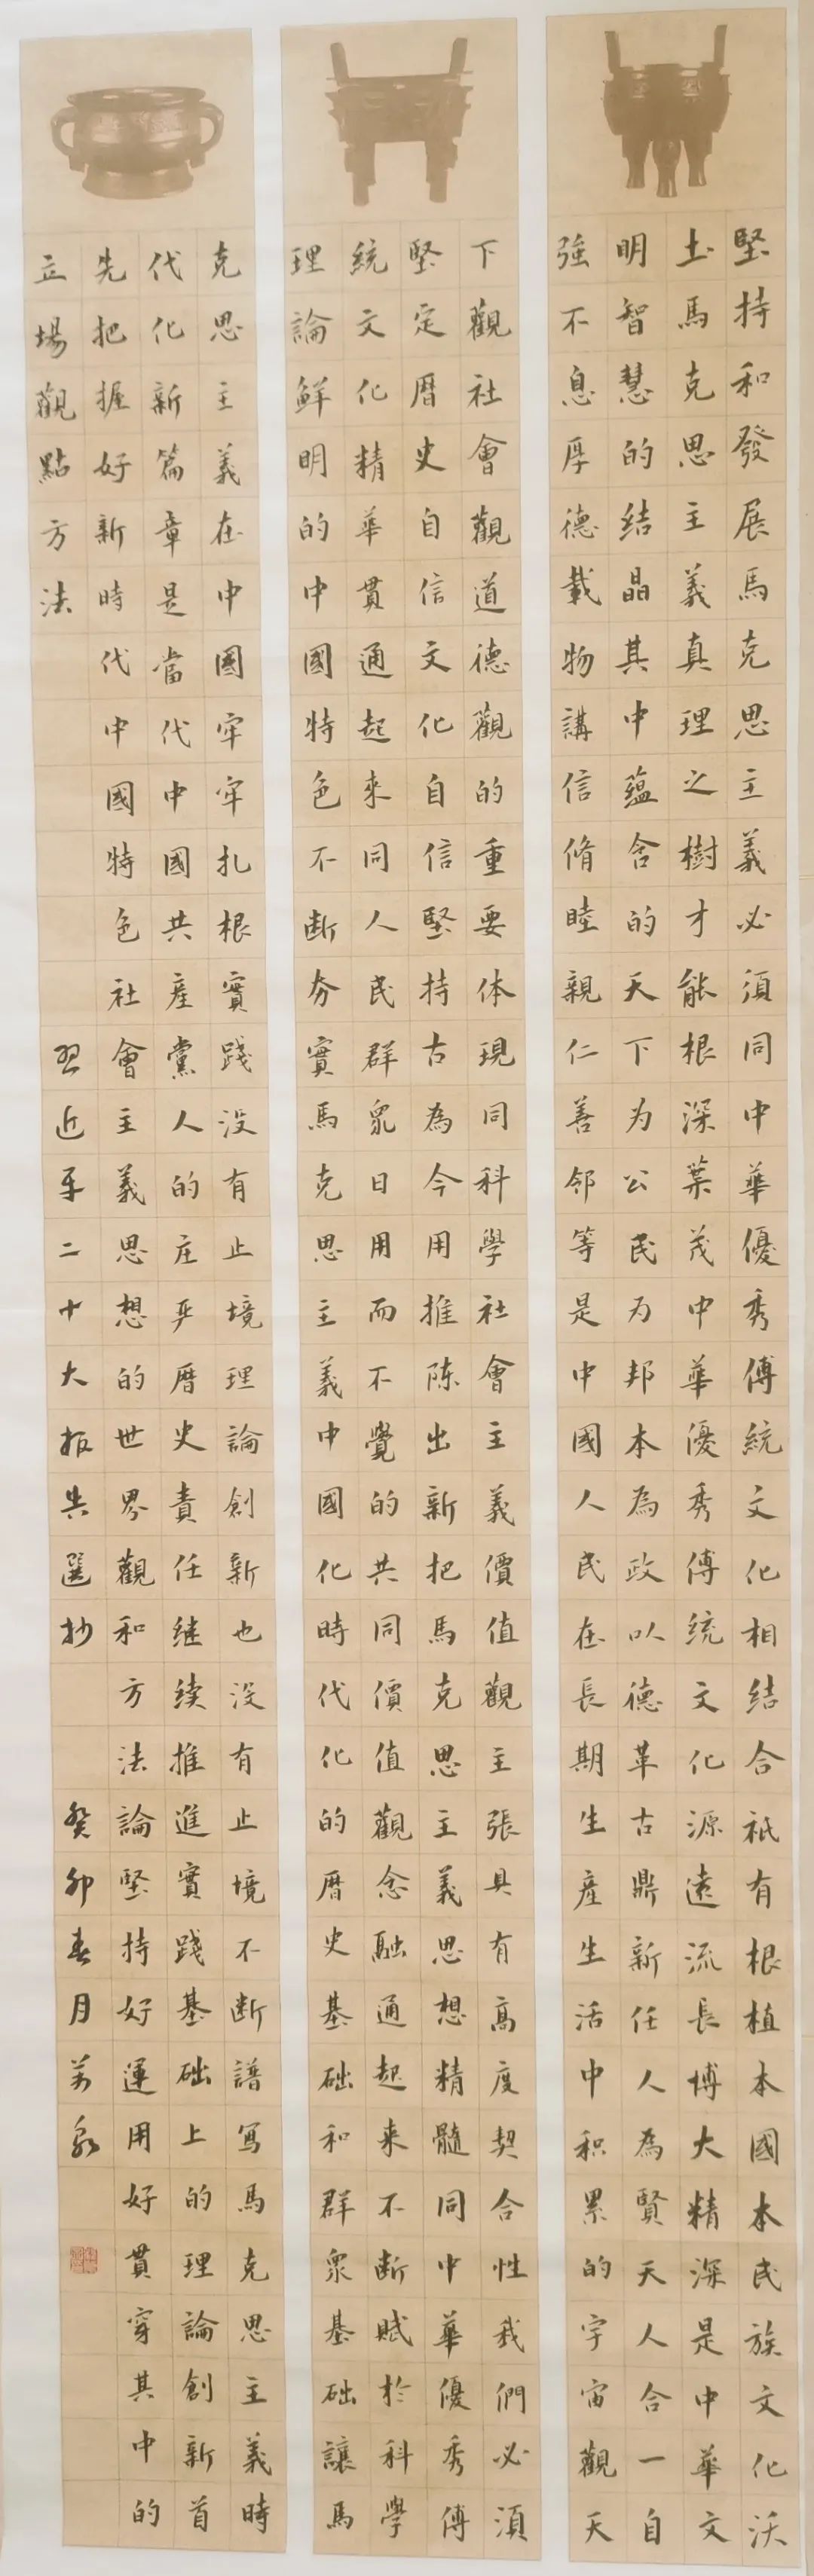 堅持和發展馬克思主義必須同中華優秀傳統文化相結合祇有根植本國本民族文化沃
土馬克思主義真理之樹才能根深葉茂中華優秀傳统文化源遠流長博大精深是中華文
明智慧的结晶其中蕴含的天下为公民为邦本為政以德革古鼎新任人為賢天人合一自
強不息厚德載物講信脩睦親仁善邻等是中國人民在長期生產生活中积累的宇宙觀天
下觀社會觀道德觀的重要体現同科學社會主義價值觀主張具有高度契合性我們必須
堅定曆史自信文化自信堅持古為今用推陈出新把馬克思主義思想精髓同中華優秀傳
統文化精華貫通起來同人民群眾日用而不覺的共同價值觀念融通起来不断賦於科學
理論鮮明的中國特色不断夯實馬克思主義中國化時代化的曆史基础和群眾基础讓馬
克思主義在中國牢牢扎根實踐没有止境理論創新也没有止境不断譜寫馬克思主義時
代化新篇章是當代中國共產黨人的庄严曆史責任继续推進實踐基础上的理論創新首
先把握好新時代中國特色社會主義思想的世界觀和方法論堅持好運用好貫穿其中的
立場觀點方法
習近平二十大报告選抄
癸卯春月